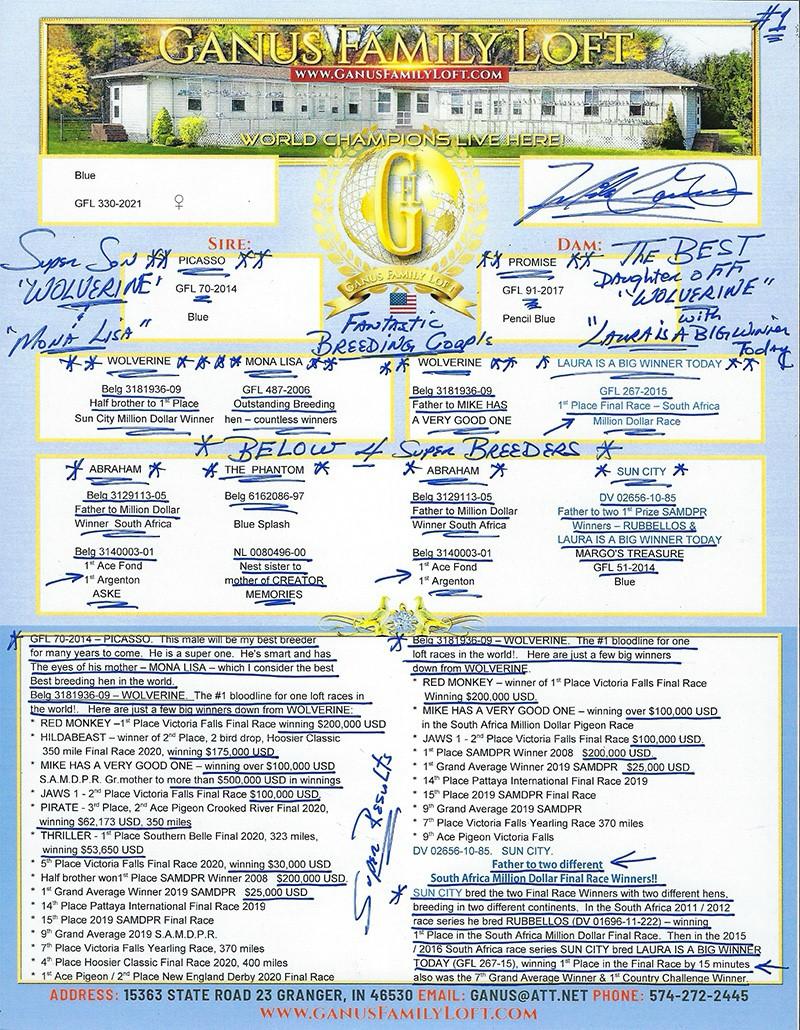 #1
GANUS FAMILY LOFT
WWW.GANUSFAMILYLOFT.COM
WORLD CHAMPIONS LIVE HERE
Blue
GFL 330-2021 ♀
GFL
GANUS FAMILY LOFT
SIRE:
** PICASSO **
GFL 70-2014
Blue
Super Son
"WOLVERINE"
&
"MONA LISA"
DAM:
** PROMISE **
GFL 91-2017
Pencil Blue
THE BEST
Daughter OFF
"WOLVERINE"
with
"LAURA IS A BIG WINNER
Today
FANTASTIC
BREEDING Couple
** WOLVERINE **
Belg 3181936-09
Half brother to 1st Place
Sun City Million Dollar Winner
** MONA LISA **
GFL 487-2006
Outstanding Breeding
hen – countless winners
WOLVERINE **
Belg 3181936-09
Father to MIKE HAS
A VERY GOOD ONE
* LAURA IS A BIG WINNER TODAY **
GFL 267-2015
1st Place Final Race – South Africa
Million Dollar Race
* BELOW 4 Super BREEDERS *
* ABRAHAM *
Belg 3129113-05
Father to Million Dollar
Winner South Africa
Belg 3140003-01
1st Ace Fond
1st Argenton
ASKE
* THE PHANTOM *
Belg 6162086-97
Blue Splash
NL 0080496-00
Nest sister to
mother of CREATOR
MEMORIES
* ABRAHAM *
Belg 3129113-05
Father to Million Dollar
Winner South Africa
Belg 3140003-01
1st Ace Fond
1st Argenton
* SUN CITY *
DV 02656-10-85
Father to two 1st Prize SAMDPR
Winners – RUBBELLOS &
LAURA IS A BIG WINNER TODAY
MARGO'S TREASURE
GFL 51-2014
Blue
* GFL 70-2014 – PICASSO. This male will be my best breeder
for many years to come. He is a super one. He's smart and has
The eyes of his mother – MONA LISA – which I consider the best
Best breeding hen in the world.
Belg 3181936-09 – WOLVERINE. The #1 bloodline for one loft races in
the world!. Here are just a few big winners down from WOLVERINE:
* RED MONKEY –1st Place Victoria Falls Final Race winning $200,000 USD
* HILDABEAST – winner of 2nd Place, 2 bird drop, Hoosier Classic
350 mile Final Race 2020, winning $175,000 USD
* MIKE HAS A VERY GOOD ONE – winning over $100,000 USD
S.A.M.D.P.R. Gr.mother to more than $500,000 USD in winnings
* JAWS 1 - 2nd Place Victoria Falls Final Race $100,000 USD.
* PIRATE - 3rd Place, 2nd Ace Pigeon Crooked River Final 2020,
winning $62,173 USD, 350 miles
* THRILLER - 1st Place Southern Belle Final 2020, 323 miles,
winning $53,650 USD
* 5th Place Victoria Falls Final Race 2020, winning $30,000 USD
* Half brother won1st Place SAMDPR Winner 2008 $200,000 USD.
* 1st Grand Average Winner 2019 SAMDPR $25,000 USD
* 14th Place Pattaya International Final Race 2019
* 15th Place 2019 SAMDPR Final Race
* 9th Grand Average 2019 S.A.M.D.P.R.
* 7th Place Victoria Falls Yearling Race, 370 miles
* 4th Place Hoosier Classic Final Race 2020, 400 miles
* 1st Ace Pigeon / 2nd Place New England Derby 2020 Final Race
Super Results
* Belg 3181936-09 – WOLVERINE. The #1 bloodline for one
loft races in the world!. Here are just a few big winners
down from WOLVERINE.
* RED MONKEY – winner of 1st Place Victoria Falls Final Race
Winning $200,000 USD.
* MIKE HAS A VERY GOOD ONE – winning over $100,000 USD
in the South Africa Million Dollar Pigeon Race
* JAWS 1 - 2nd Place Victoria Falls Final Race $100,000 USD.
* 1st Place SAMDPR Winner 2008 $200,000 USD.
* 1st Grand Average Winner 2019 SAMDPR $25,000 USD
* 14th Place Pattaya International Final Race 2019
* 15th Place 2019 SAMDPR Final Race
* 9th Grand Average 2019 SAMDPR
* 7th Place Victoria Falls Yearling Race 370 miles
* 9th Ace Pigeon Victoria Falls
DV 02656-10-85. SUN CITY.
Father to two different
South Africa Million Dollar Final Race Winners!!
* SUN CITY bred the two Final Race Winners with two different hens,
breeding in two different continents. In the South Africa 2011 / 2012
race series he bred RUBBELLOS (DV 01696-11-222) – winning
1st Place in the South Africa Million Dollar Final Race. Then in the 2015
/ 2016 South Africa race series SUN CITY bred LAURA IS A BIG WINNER
TODAY (GFL 267-15), winning 1st Place in the Final Race by 15 minutes
also was the 7th Grand Average Winner & 1st Country Challenge Winner.
ADDRESS: 15363 STATE ROAD 23 GRANGER, IN 46530 EMAIL: GANUS@ATT.NET PHONE: 574-272-2445
WWW.GANUSFAMILYLOFT.COM